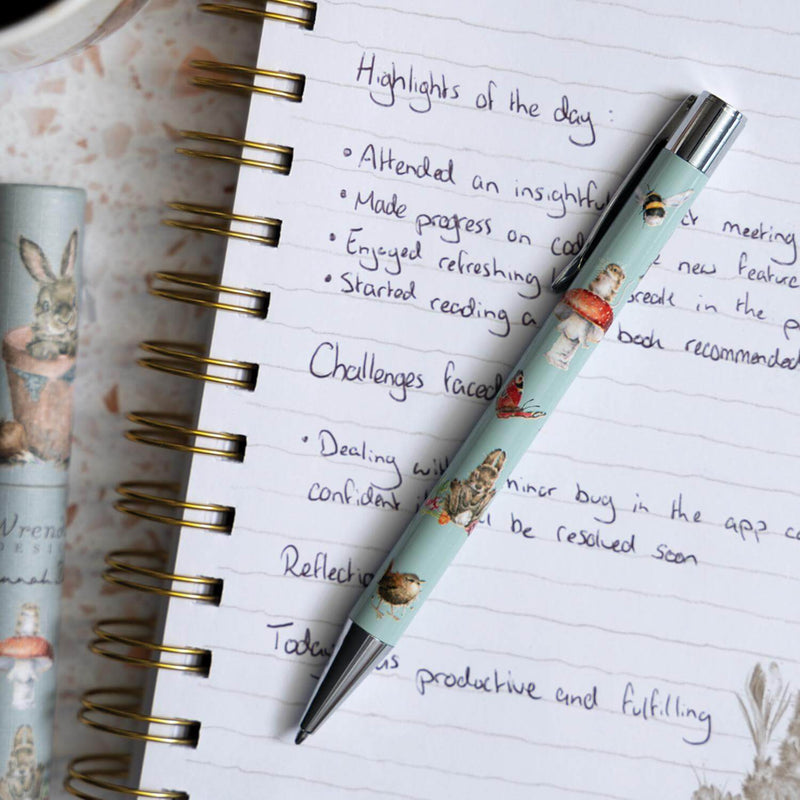 Highlights of the day :
• Attended an insightful meeting
• Made progress on new feature
• Enjoyed refreshing break in the
• Started reading a book recommended
Challenges faced
• Dealing with minor bug in the app
confident be resolved soon
Reflection
Today was productive and fulfilling
Wrendale
DESIGNS